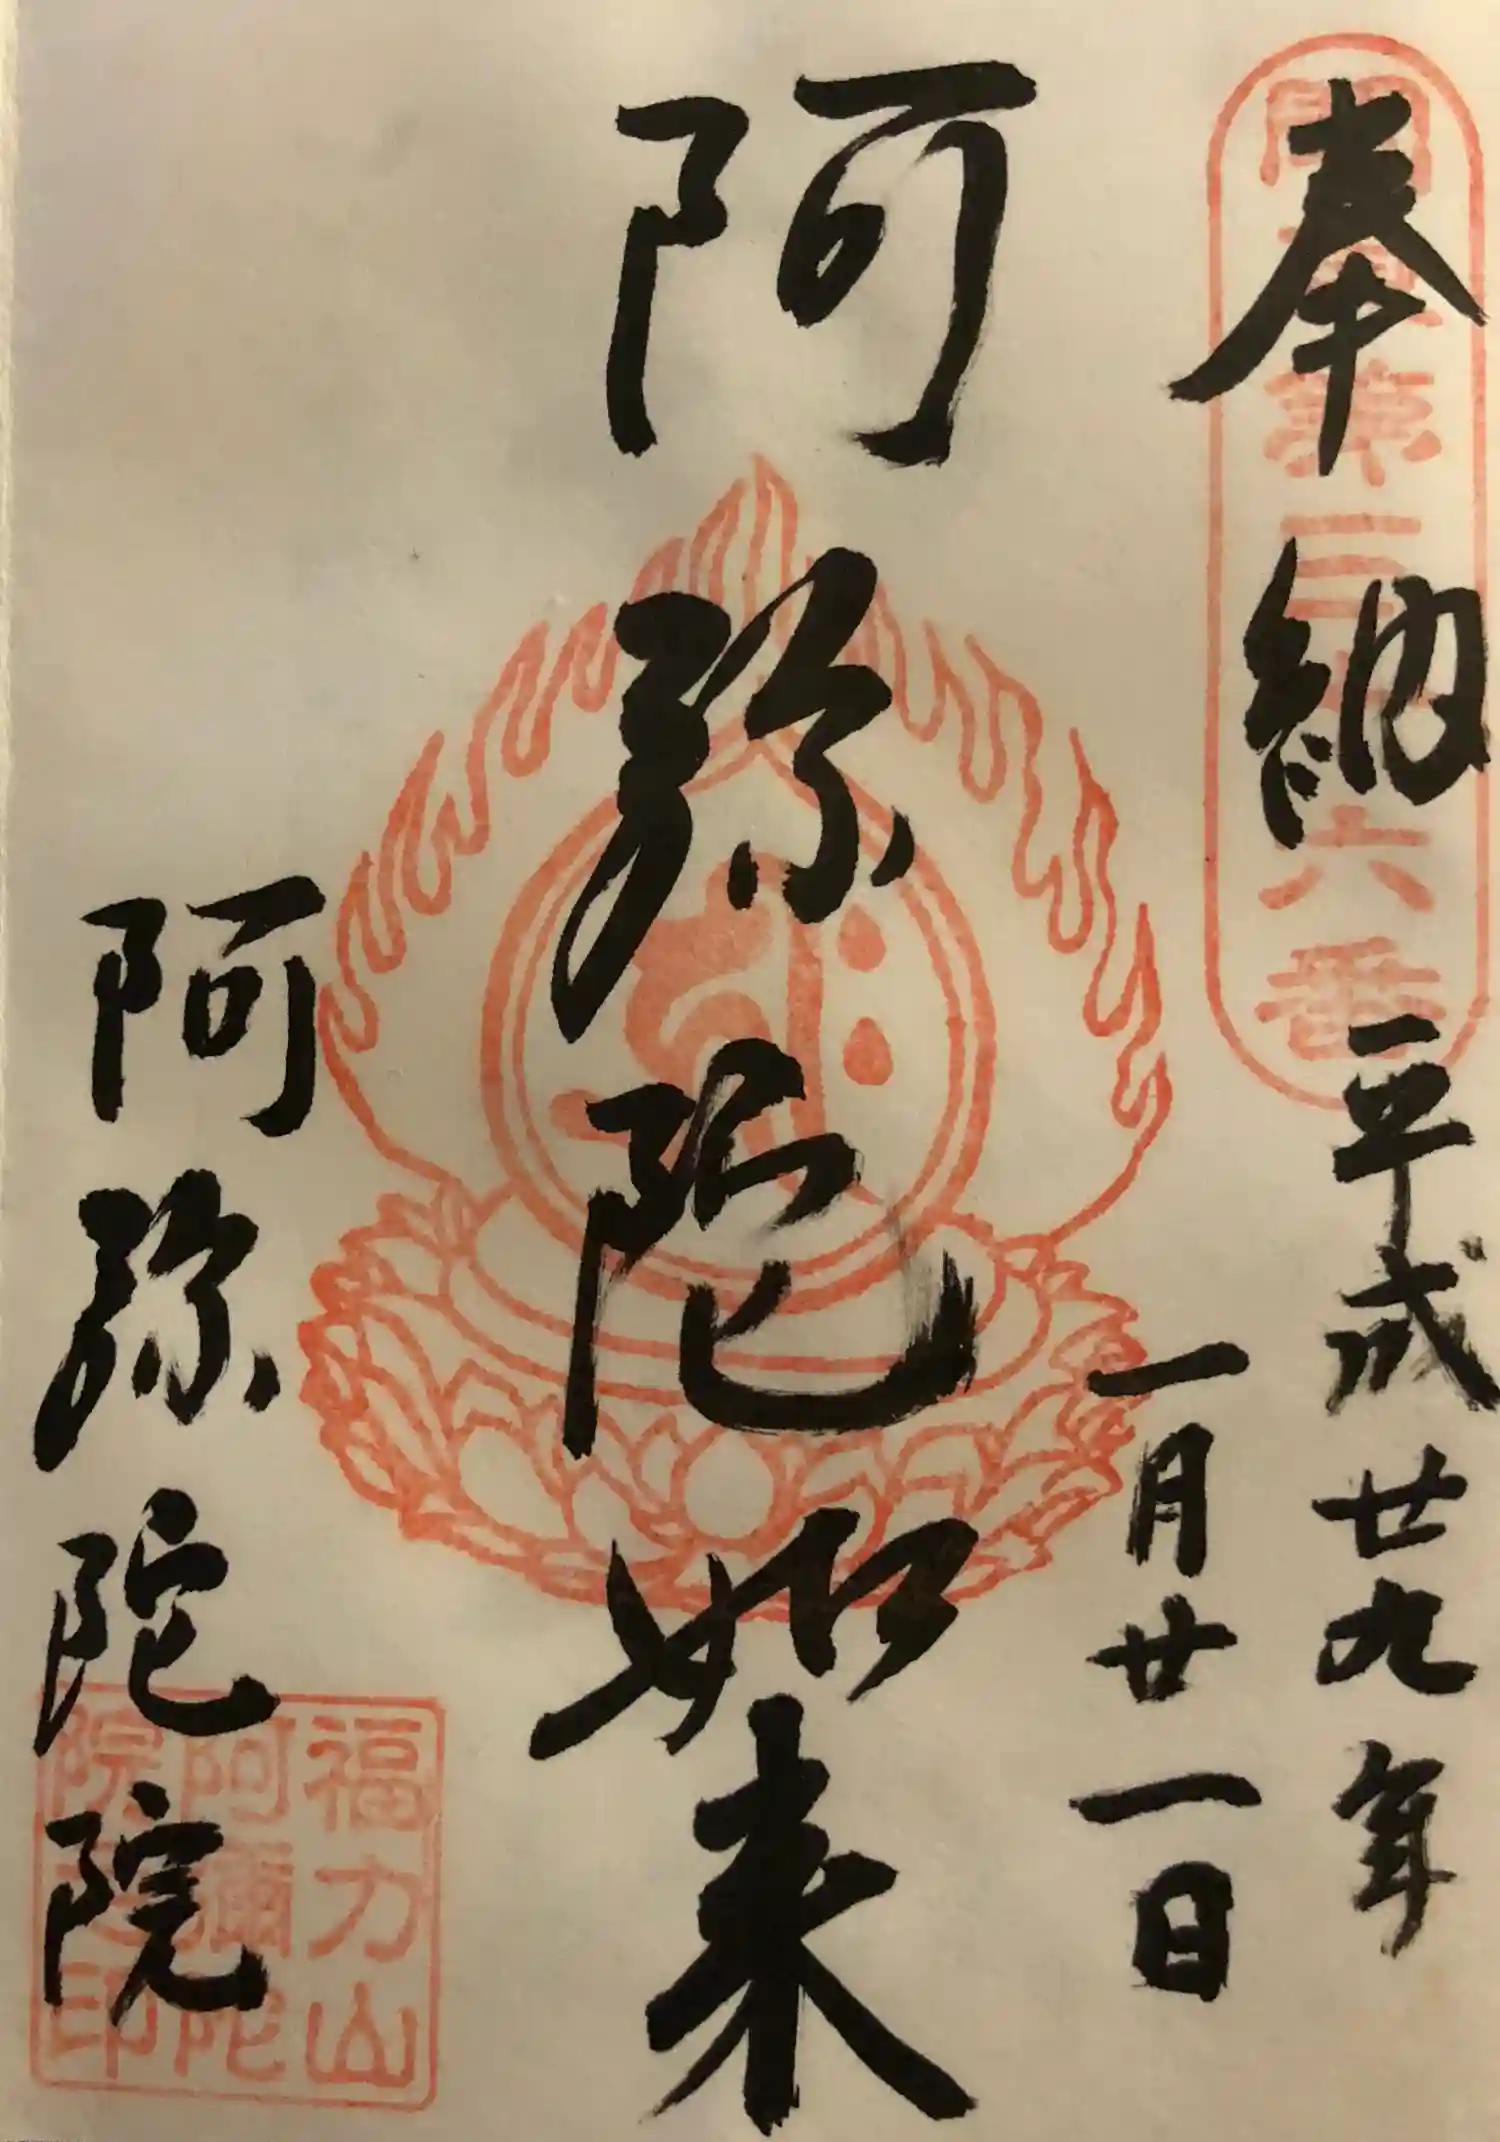 奉納
関東第三十六番
平成廿九年
一月廿一日
阿弥陀如来
阿弥陀院
福力山
阿彌陀
院之印